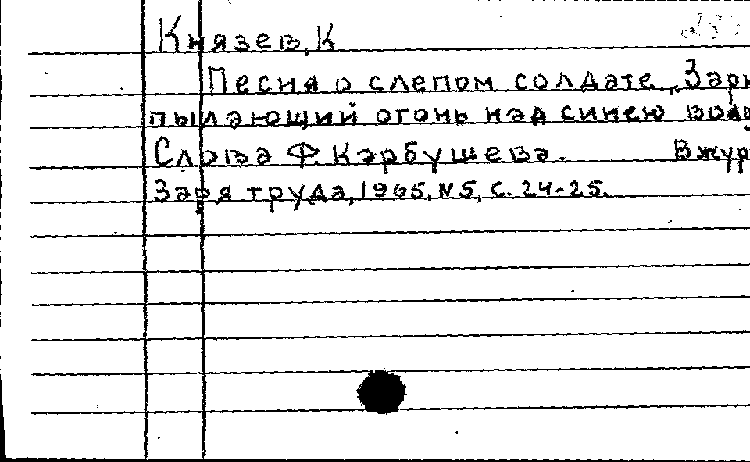 Князев, К
Песня о слепом солдате. „Зари
пылающий огонь над синею водо
Слова Ф. Карбушева. В жур
Заря труда, 1965, N5, с. 24-25.